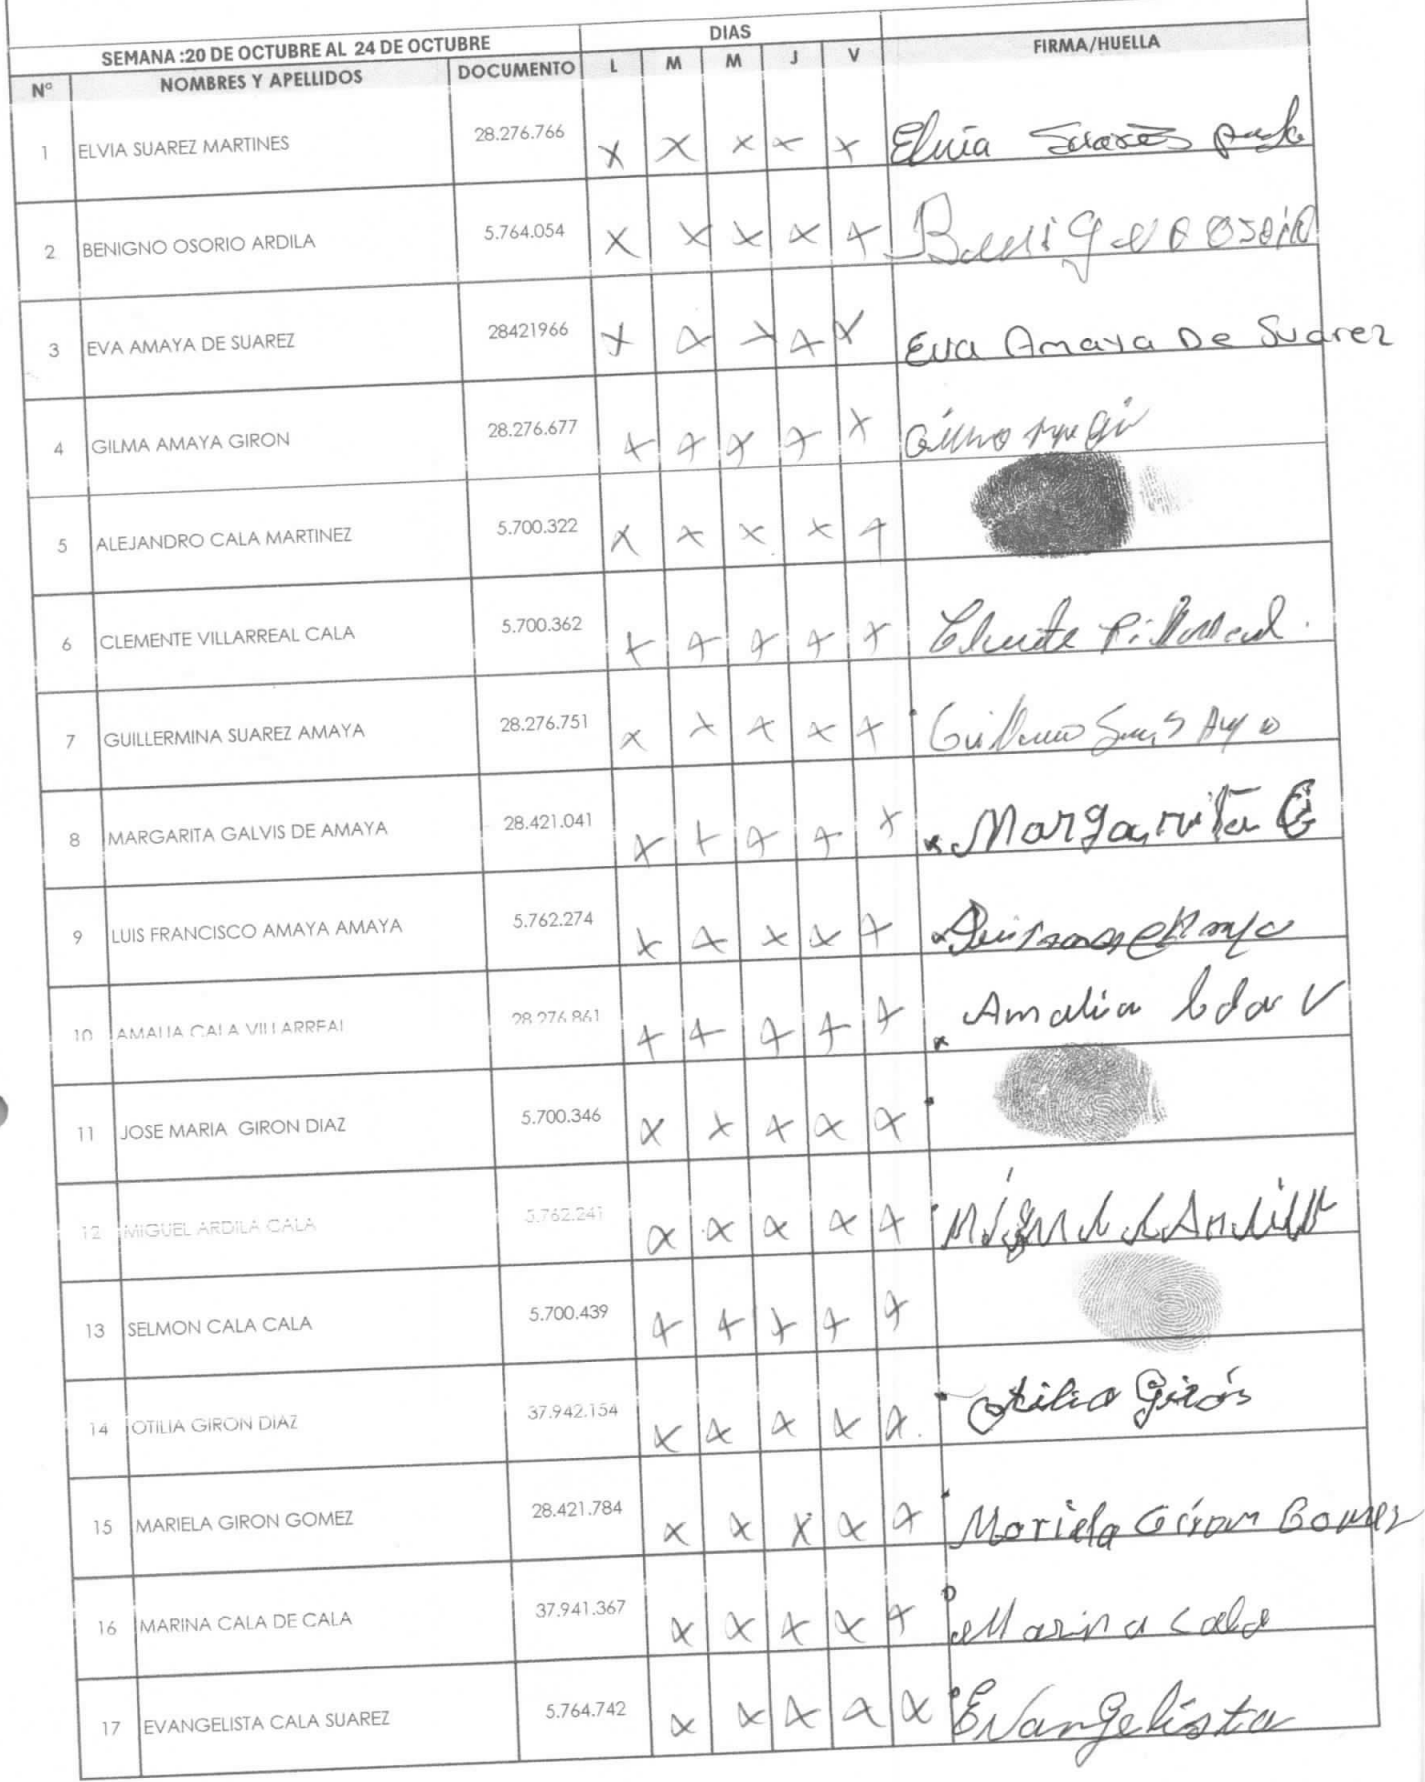 DIAS
SEMANA :20 DE OCTUBRE AL 24 DE OCTUBRE
N° NOMBRES Y APELLIDOS DOCUMENTO L M M J V FIRMA/HUELLA
1 ELVIA SUAREZ MARTINES 28.276.766 X X X X X Elvia Suares
2 BENIGNO OSORIO ARDILA 5.764.054 X X X X X
3 EVA AMAYA DE SUAREZ 28421966 X X X X X Eva Amaya De Suarez
4 GILMA AMAYA GIRON 28.276.677 X X X X X
5 ALEJANDRO CALA MARTINEZ 5.700.322 X X X X X
6 CLEMENTE VILLARREAL CALA 5.700.362 X X X X X
7 GUILLERMINA SUAREZ AMAYA 28.276.751 X X X X X
8 MARGARITA GALVIS DE AMAYA 28.421.041 X X X X X x Margarita G
9 LUIS FRANCISCO AMAYA AMAYA 5.762.274 X X X X X
10 AMALIA CALA VILLARREAL 28.276.861 X X X X X x Amalia V
11 JOSE MARIA GIRON DIAZ 5.700.346 X X X X X
12 MIGUEL ARDILA CALA 5.762.241 X X X X X
13 SELMON CALA CALA 5.700.439 X X X X X
14 OTILIA GIRON DIAZ 37.942.154 X X X X X Otilia Girón
15 MARIELA GIRON GOMEZ 28.421.784 X X X X X Mariela Giron Gomez
16 MARINA CALA DE CALA 37.941.367 X X X X X Marina Cala
17 EVANGELISTA CALA SUAREZ 5.764.742 X X X X X Evangelista